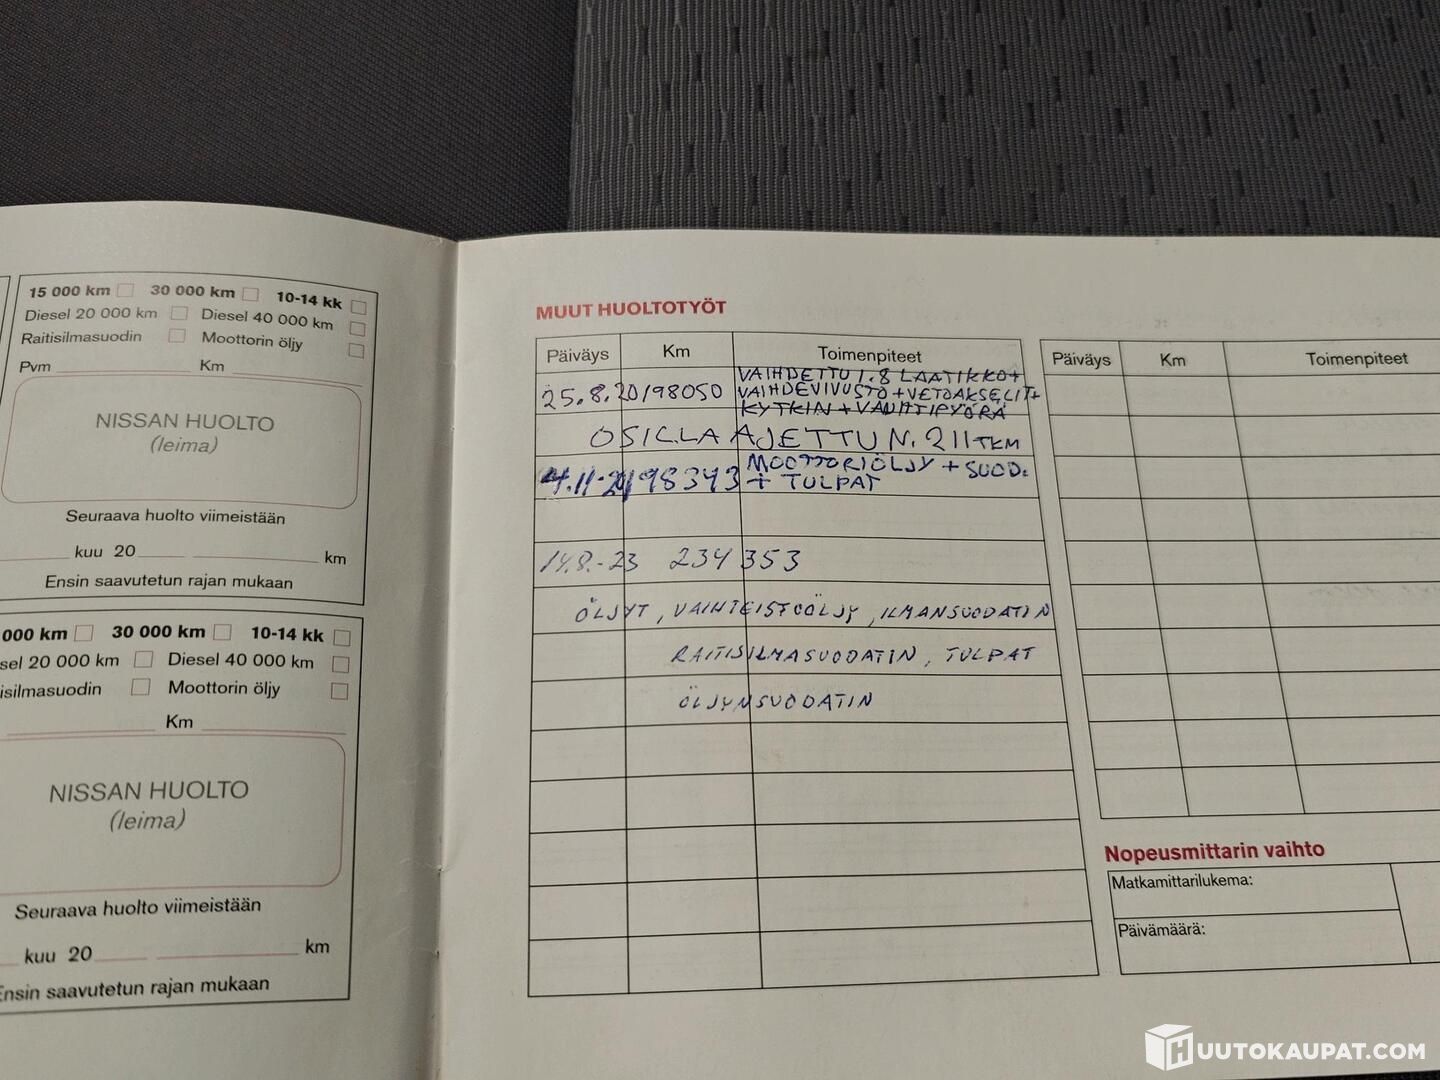 15 000 km 30 000 km 10-14 kk
Diesel 20 000 km Diesel 40 000 km
Raitisilmasuodin Moottorin öljy
Pvm Km
NISSAN HUOLTO
(leima)
Seuraava huolto viimeistään
kuu 20 km
Ensin saavutetun rajan mukaan
000 km 30 000 km 10-14 kk
sel 20 000 km Diesel 40 000 km
isilmasuodin Moottorin öljy
Km
NISSAN HUOLTO
(leima)
Seuraava huolto viimeistään
kuu 20 km
Ensin saavutetun rajan mukaan
MUUT HUOLTOTYÖT
Päiväys Km Toimenpiteet
VAIHDETTU 1.8 LAATIKKO+
25.8.20 198050 VAIHDEVIVUSTO+VETOAKSELIT+
KYTKIN + VAUHTIPYÖRÄ
OSILLA AJETTU N. 211TKM
4.11.20 198343 MOOTTORIÖLJY + SUOD.
+ TULPAT
14.8.-23 234 353
ÖLJYT, VAIHTEISTOÖLJY, ILMANSUODATIN
RAITISILMASUODATIN, TULPAT
ÖLJYNSUODATIN
Päiväys Km Toimenpiteet
Nopeusmittarin vaihto
Matkamittarilukema:
Päivämäärä:
HUUTOKAUPAT.COM